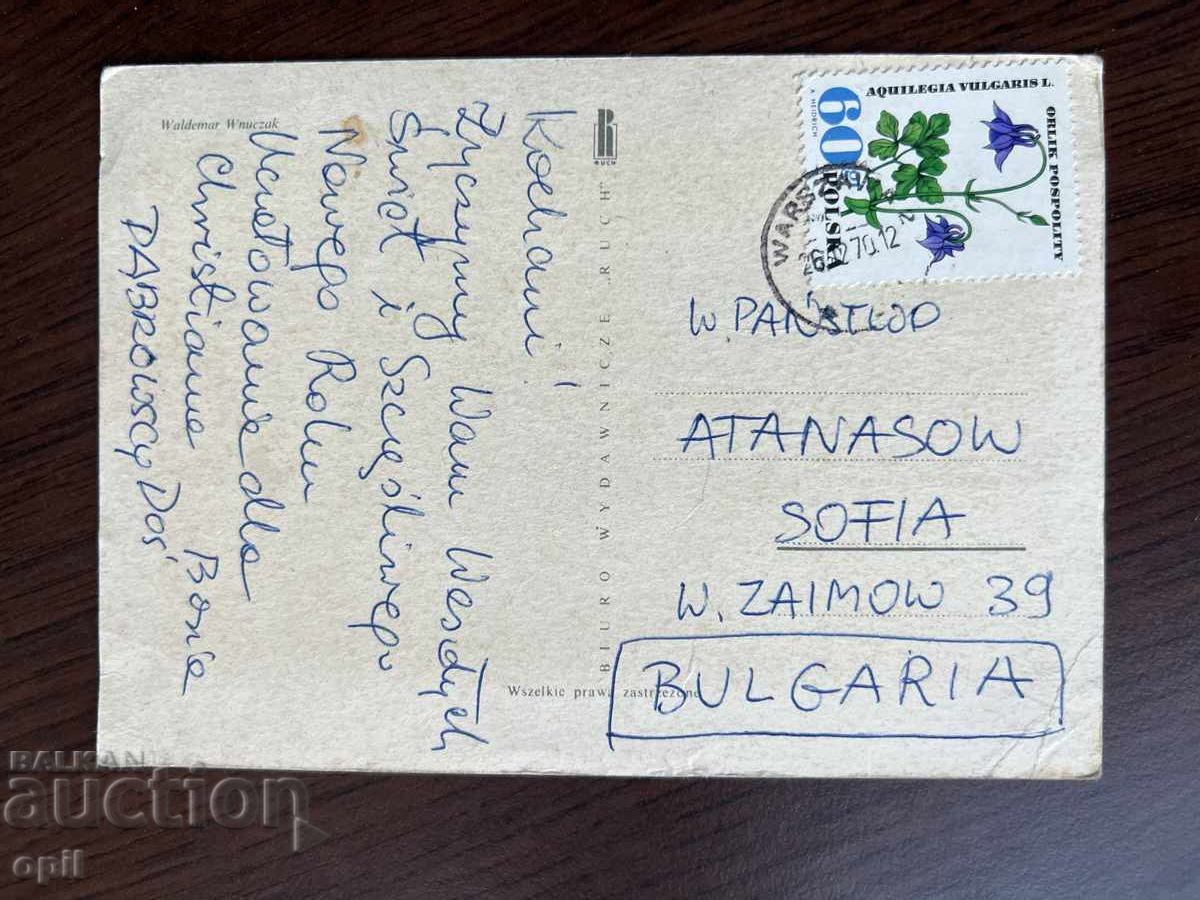 Waldemar Wnuczak
Kochani!
Życzymy Wam Wesołych
Świąt i Szczęśliwego
Nowego Roku
Ucałowania dla
Christianne Bonie
DĄBROWSCY
BIURO WYDAWNICZE „RUCH”
RUCH
Wszelkie prawa zastrzeżone
AQUILEGIA VULGARIS L.
ORLIK POSPOLITY
60
POLSKA
A. HEIDRICH
WARSZAWA
26.12.70.12
W. PAŃSTWO
ATANASOW
SOFIA
W. ZAIMOW 39
BULGARIA
BALKAN
auction
opil